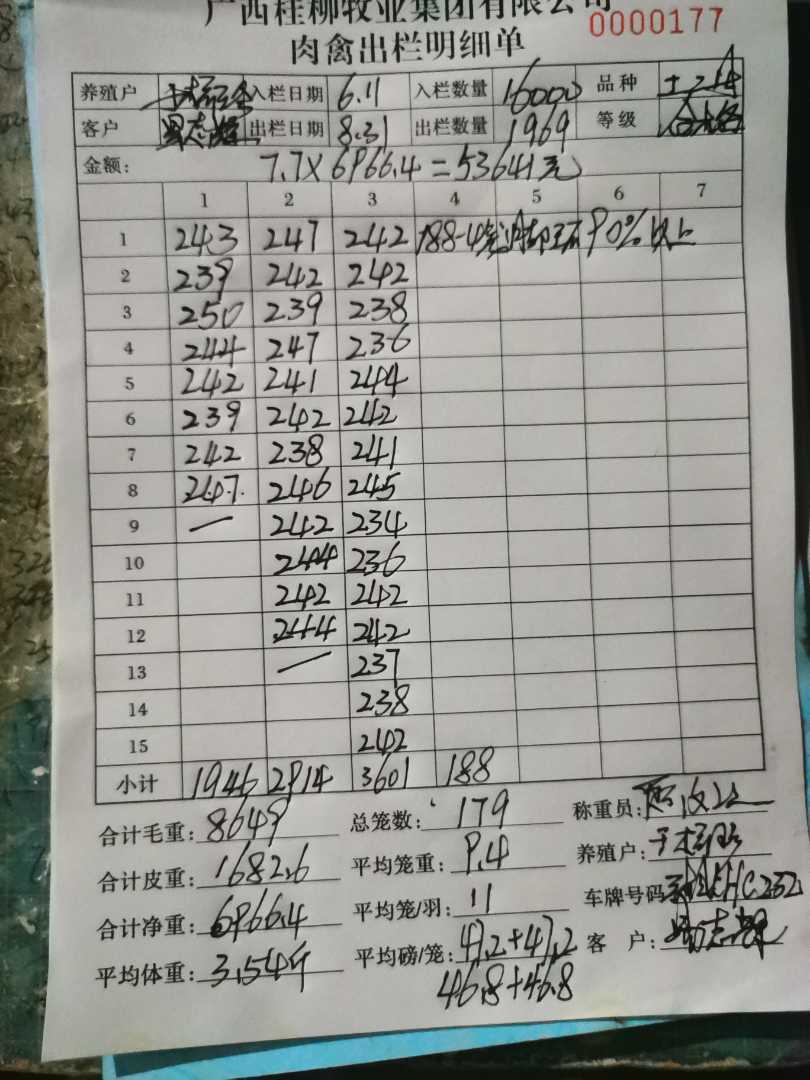 广西桂柳牧业集团有限公司
0000177
肉禽出栏明细单
养殖户 入栏日期 6.11 入栏数量 16000 品种 土2
客户 出栏日期 8.31 出栏数量 1969 等级 合格
金额: 7.7×6966.4=53641元
1 2 3 4 5 6 7
1 243 247 242 188-4 90%以上
2 239 242 242
3 250 239 238
4 244 247 236
5 242 241 244
6 239 242 242
7 242 238 241
8 247 246 245
9 — 242 234
10 244 236
11 242 242
12 244 242
13 — 237
14 238
15 242
小计 1946 2914 3601 188
合计毛重: 8649 总笼数: 179 称重员:
合计皮重: 1682.6 平均笼重: 9.4 养殖户:
合计净重: 6966.4 平均笼/羽: 11 车牌号码
平均体重: 3.54斤 平均磅/笼: 47.2+47.2 客 户:
46.8+46.8